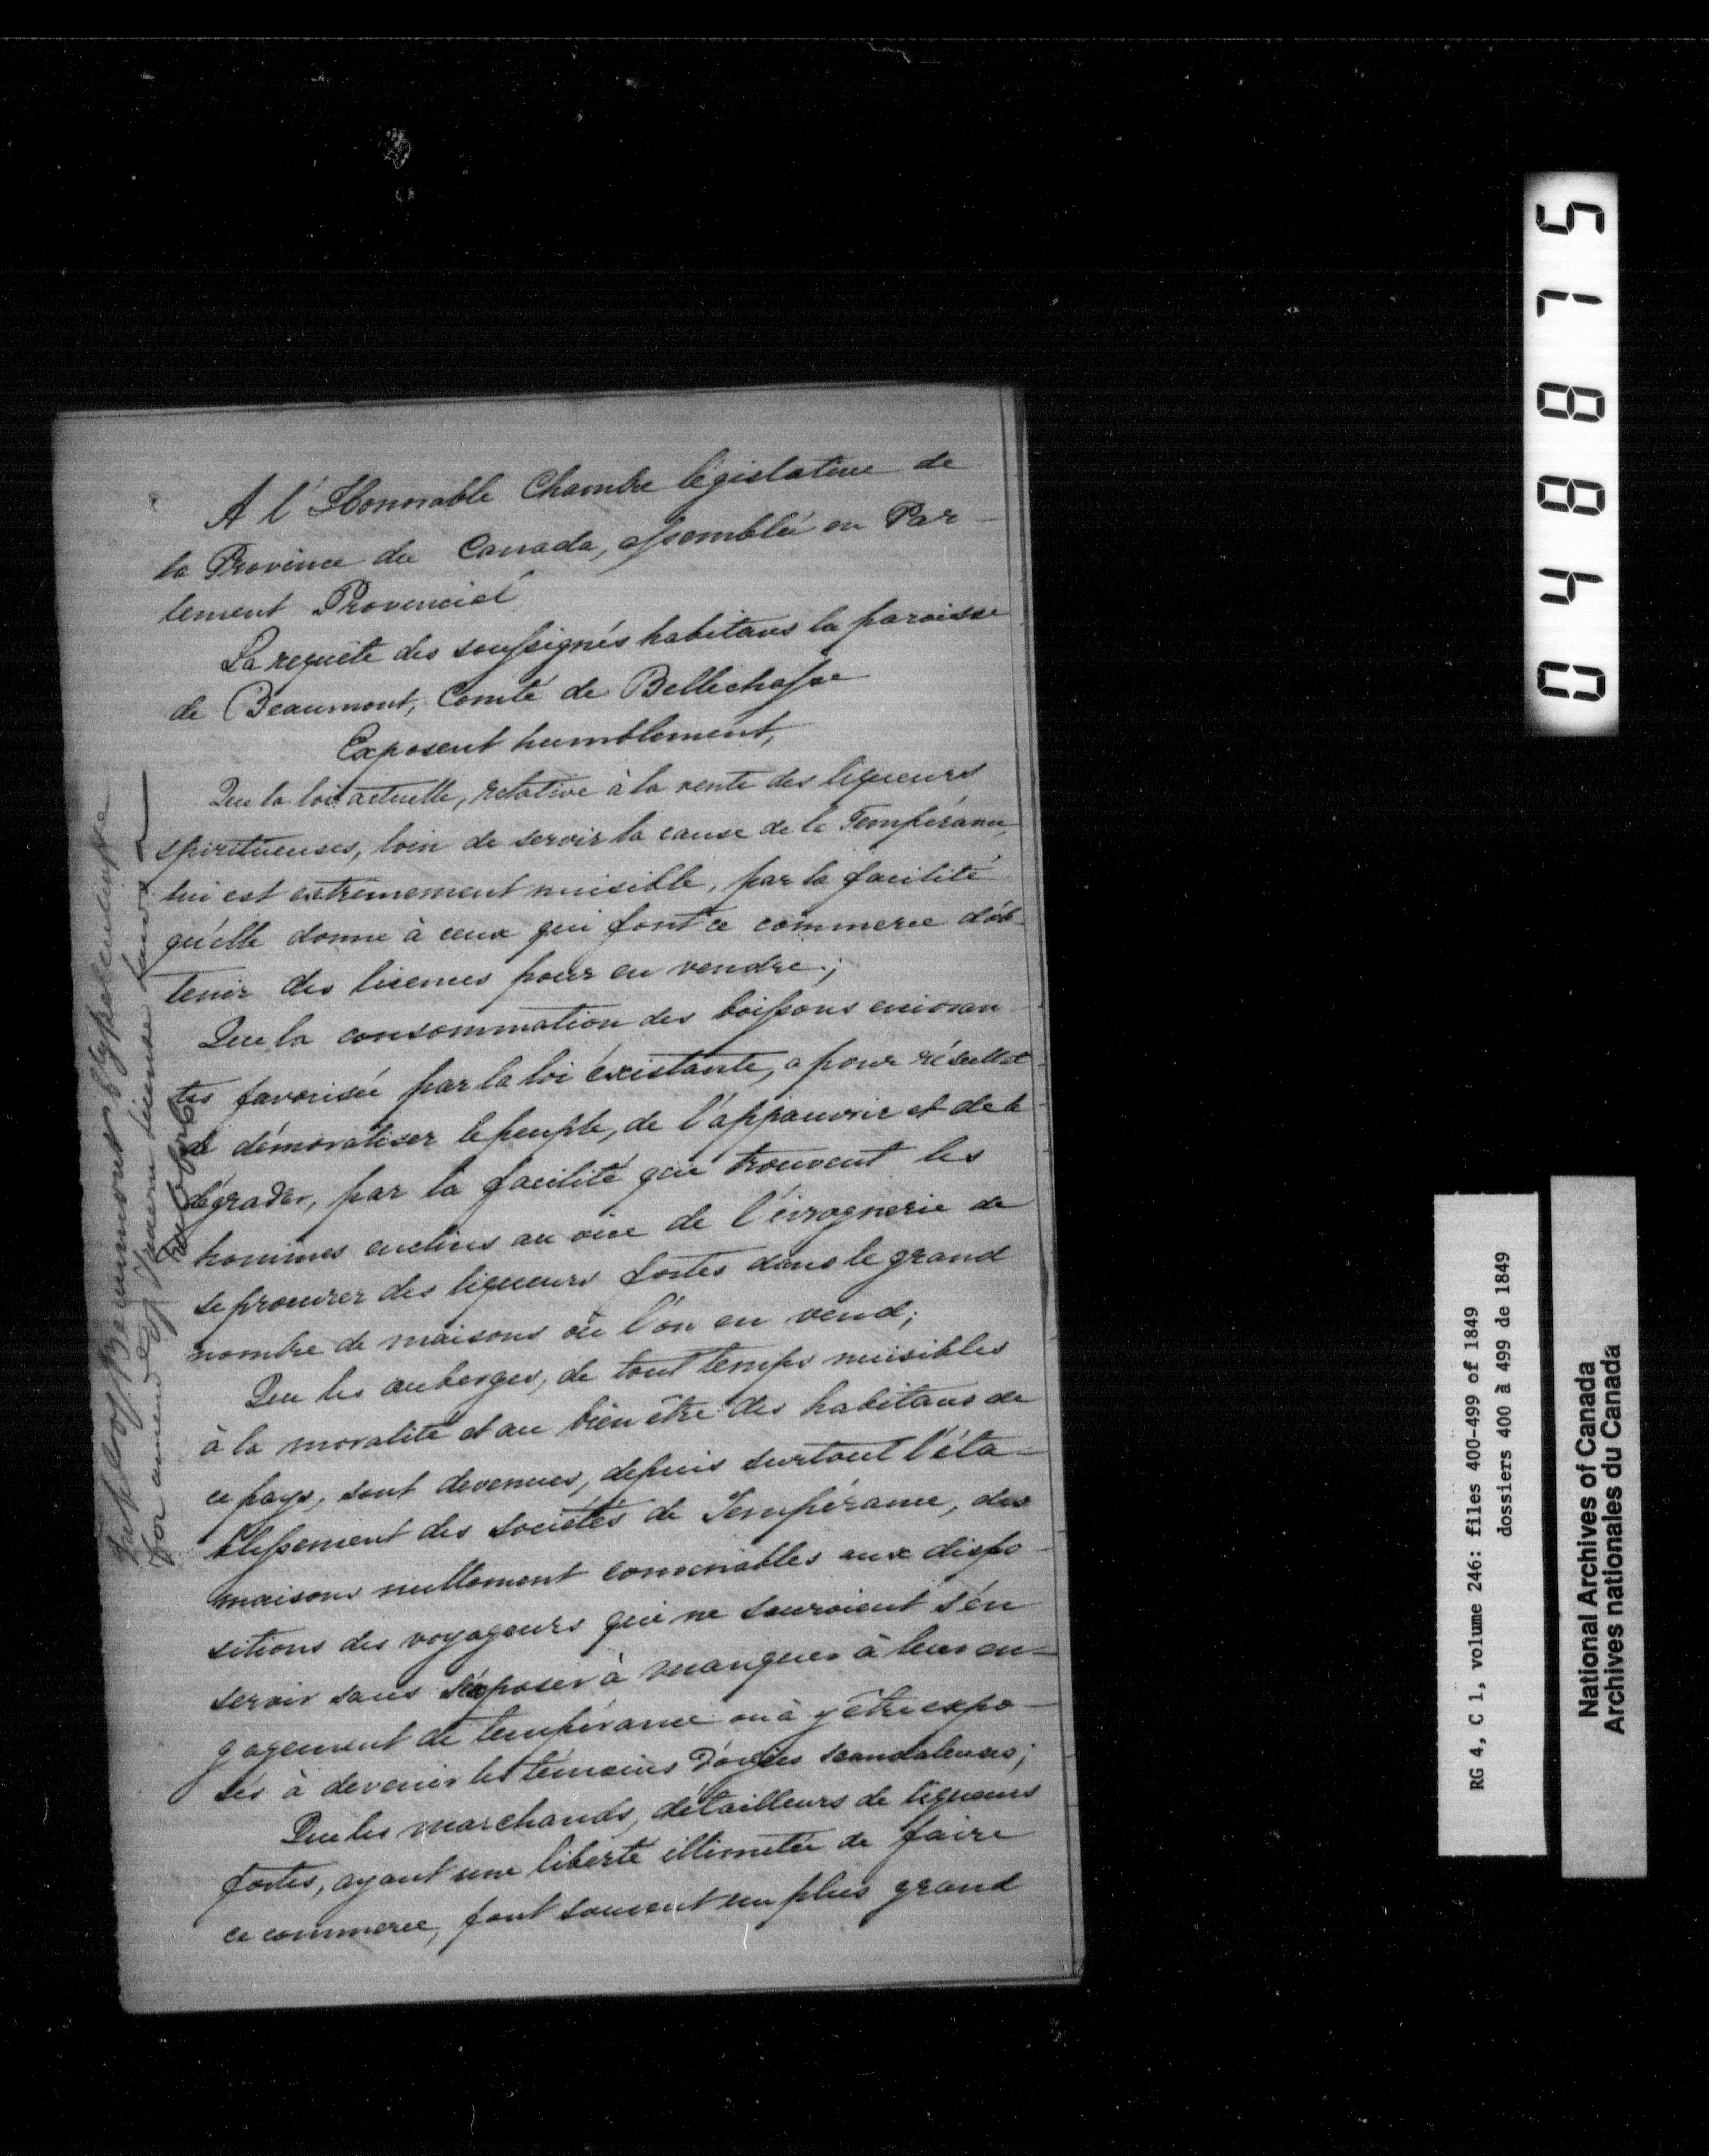 A l'Honorable Chambre législative de
la Province du Canada, assemblée en Par-
lement Provincial
La requête des soussignés habitans la paroisse
de Beaumont, Comté de Bellechasse
Exposent humblement,
Que la loi actuelle, relative à la vente des liqueurs
spiritueuses, loin de servir la cause de la Tempérance,
lui est extremement nuisible, par la facilité
qu'elle donne à ceux qui font ce commerce d'ob-
tenir des licences pour en vendre;
Que la consommation des boissons enivran-
tes favorisée par la loi éxistante, a pour résultat
de démoraliser le peuple, de l'appauvrir et de le
dégrader, par la facilité que trouvent les
hommes enclins au vice de l'ivrognerie de
se procurer des liqueurs fortes dans le grand
nombre de maisons où l'on en vend;
Que les auberges, de tout temps nuisibles
à la moralité et au bien être des habitans de
ce pays, sont devenues, depuis surtout l'éta-
blissement des sociétés de Tempérance, des
maisons nullement convenables aux dispo-
sitions des voyageurs qui ne sauroient s'en
servir sans s'éxposer à manquer à leur en-
gagement de tempérance ou à y être expo-
sés à devenir les témoins d'orgies scandaleuses;
Que les marchands, détailleurs de liqueurs
fortes, ayant une liberté illimitée de faire
ce commerce, font souvent un plus grand
of Beaumont
for amend of Tavern License Laws
048875
RG 4, C 1, volume 246: files 400-499 of 1849
dossiers 400 à 499 de 1849
National Archives of Canada
Archives nationales du Canada